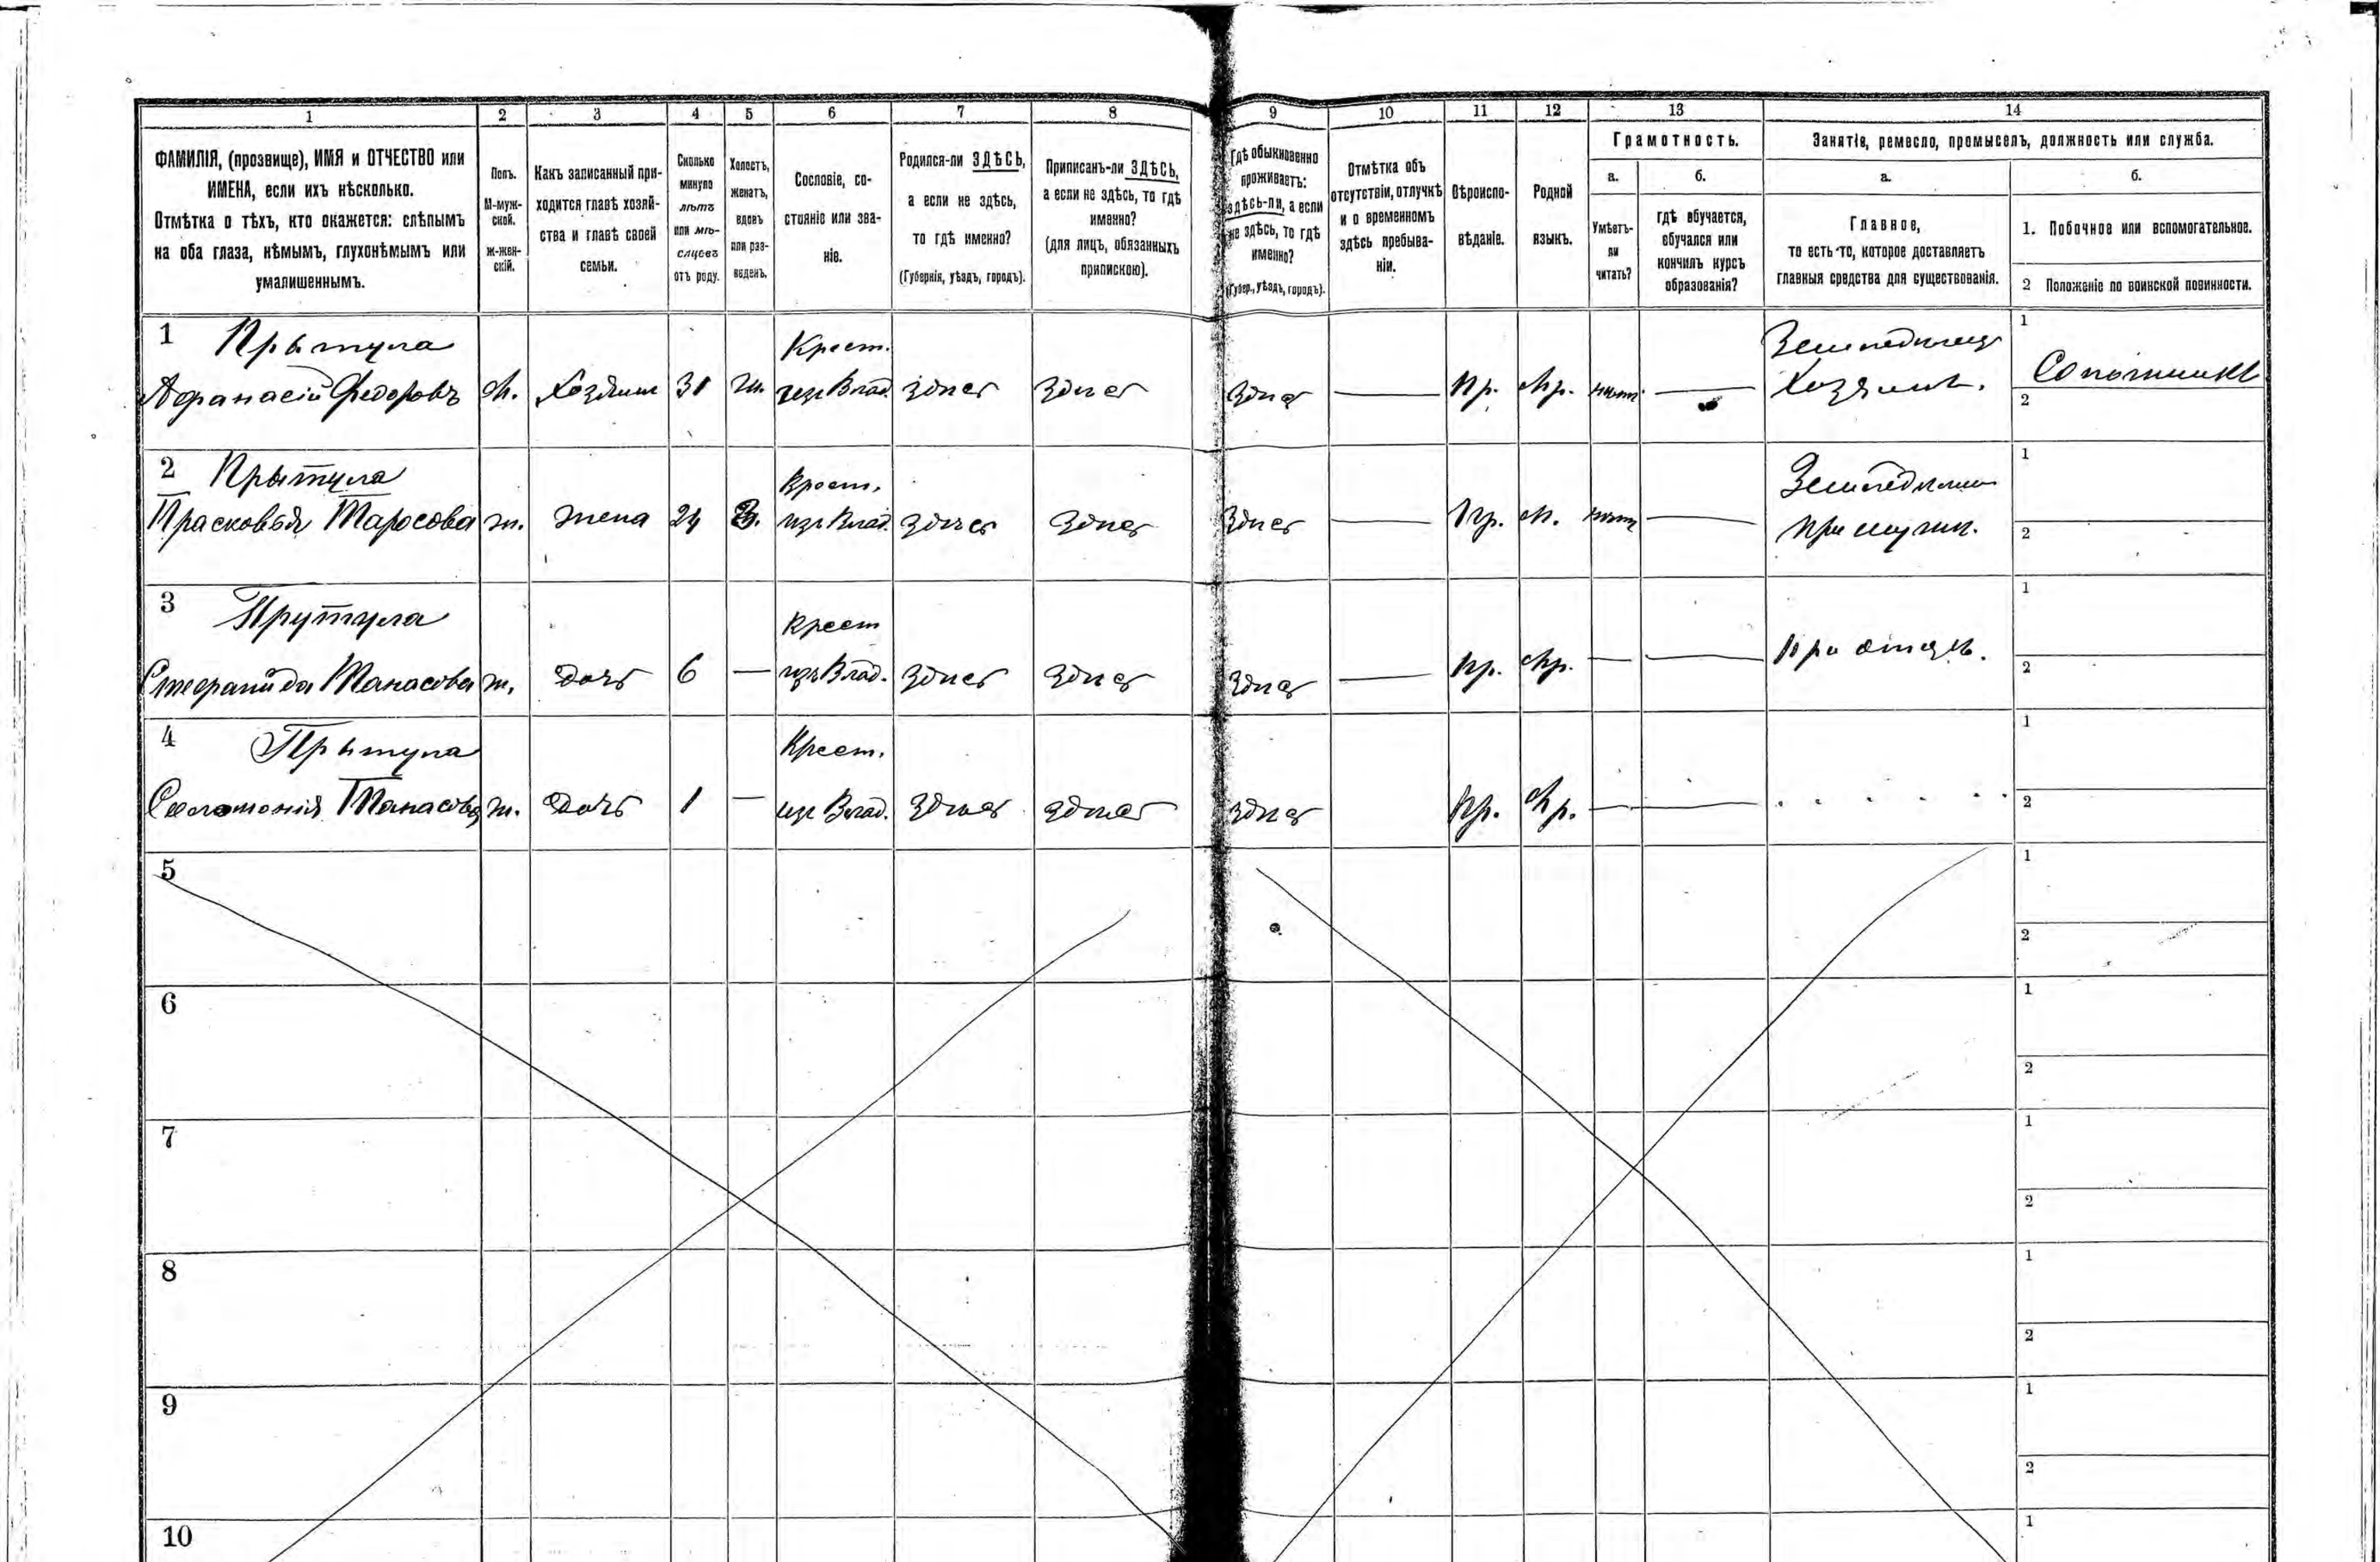 1 2 3 4 5 6 7 8 9 10 11 12 13 14
ФАМИЛІЯ, (прозвище), ИМЯ и ОТЧЕСТВО или
ИМЕНА, если ихъ нѣсколько.
Отмѣтка о тѣхъ, кто окажется: слѣпымъ
на оба глаза, нѣмымъ, глухонѣмымъ или
умалишеннымъ.
Полъ.
М-муж-
ской.
Ж-жен-
скій.
Какъ записанный при-
ходится главѣ хозяй-
ства и главѣ своей
семьи.
Сколько
минуло
лѣтъ
или мѣ-
сяцевъ
отъ роду.
Холостъ,
женатъ,
вдовъ
или раз-
веденъ.
Сословіе, со-
стояніе или зва-
ніе.
Родился-ли ЗДѢСЬ,
а если не здѣсь,
то гдѣ именно?
(Губернія, уѣздъ, городъ).
Приписанъ-ли ЗДѢСЬ,
а если не здѣсь, то гдѣ
именно?
(для лицъ, обязанныхъ
припискою).
Гдѣ обыкновенно
проживаетъ:
здѣсь-ли, а если
не здѣсь, то гдѣ
именно?
(Губер., уѣздъ, городъ).
Отмѣтка объ
отсутствіи, отлучкѣ
и о временномъ
здѣсь пребыва-
ніи.
Вѣроиспо-
вѣданіе.
Родной
языкъ.
Грамотность.
а.
Умѣетъ-
ли
читать?
б.
гдѣ обучается,
обучался или
кончилъ курсъ
образованія?
Занятіе, ремесло, промыселъ, должность или служба.
а.
Главное,
то есть то, которое доставляетъ
главныя средства для существованія.
б.
1. Побочное или вспомогательное.
2 Положеніе по воинской повинности.
1 Прытула Крест. 1
Афанасій Федоровъ М. Хозяин 31 ж. изъ Влад. здѣсь здѣсь здѣсь — Пр. Мр. нѣт. — Хозяинъ. 2
2 Прытула Крест. 1
Прасковья Тарасова ж. жена 24 З. изъ Влад. здѣсь здѣсь здѣсь — Пр. М. нѣт — при мужѣ. 2
3 Прутула Крест 1
Стефанида Танасова ж. дочь 6 — изъ Влад. здѣсь здѣсь здѣсь — Пр. Мр. — — При отцѣ. 2
4 Прытула Крест. 1
Соломонія Танасова ж. дочь 1 — изъ Влад. здѣсь здѣсь здѣсь Пр. Мр. — — 2
5 1
2
6 1
2
7 1
2
8 1
2
9 1
2
10 1